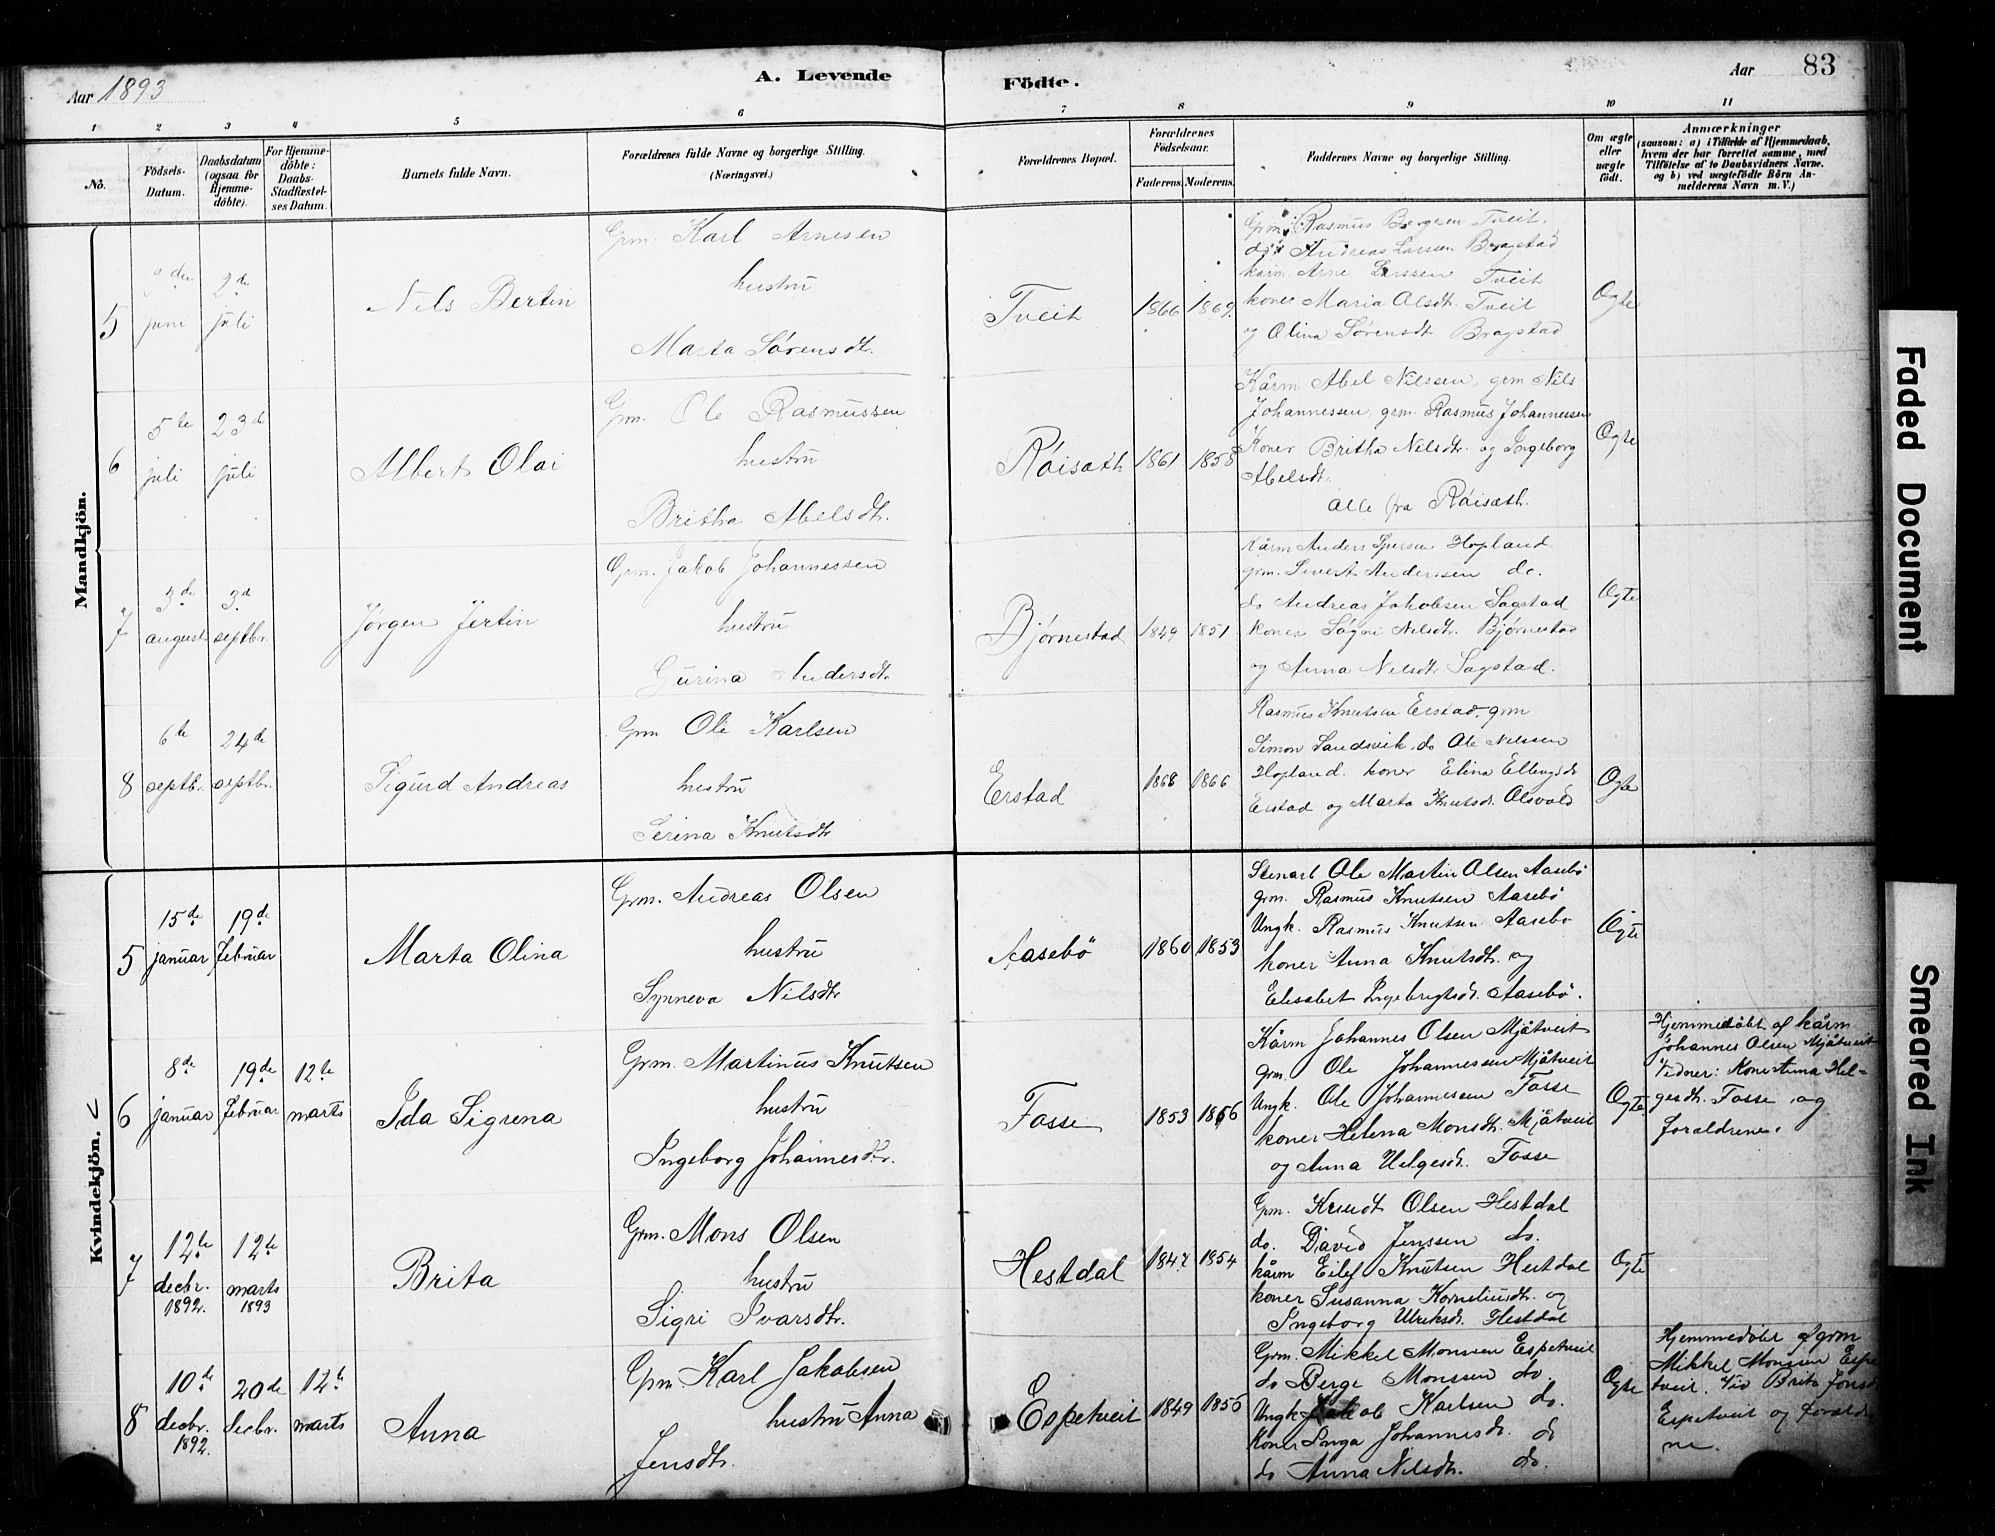 Aar 1893
A. Levende
Födte.
Aar
83
1 2 3 4 5 6 7 8 9 10 11
No.
Födsels-
Datum.
Daabsdatum
(ogsaa for
Hjemme-
döbte).
For Hjemme-
döbte:
Daabs-
Stadfæstel-
ses Datum.
Barnets fulde Navn.
Forældrenes fulde Navne og borgerlige Stilling.
(Næringsvei.)
Forældrenes Bopæl.
Forældrenes
Födselsaar.
Faderens. Moderens.
Faddernes Navne og borgerlige Stilling.
Om ægte
eller
uægte
födt.
Anmærkninger
(saasom: a) i Tilfælde af Hjemmedaab,
hvem der har forrettet samme, med
Tilföielse af to Daabsvidners Navne.
og b) ved uægtefödte Börn An-
melderens Navn m. V.)
Mandkjön.
5
juni
2de
juli
Nils Bertin
Grm. Karl Arnesen
hustru
Marta Sörensdt.
Tveit
1866 1869.
Grm. Rasmus Tveit.
do Andreas Larssen Bragstad
kårm. Arne Larssen Tveit
koner Maria Olsdt. Tveit
og Olina Sørensdt. Bragstad
Ogte
6
5te
juli
23de
juli
Albert Olai
Grm. Ole Rasmussen
hustru
Britha Abelsdt.
Röisæth
1861 1858
Kårm Abel Nilssen, grm Nils
Johannessen, grm. Rasmus Johannessen
Koner Britha Nilsdtr. og Ingeborg
Abelsdt.
alle fra Röisæth.
Ogte
7
3de
august
3d
septbr.
Jørgen Jertin
Grm. Jakob Johannessen
hustru
Gurina Andersdtr
Bjørnestad
1849 1851
Kårm Anders Hopland
grm. Sivert Andersen do.
do Andreas Jakobsen Sagstad
koner Nilsdtr. Bjørnestad
og Anna Nilsdt. Sagstad.
Ogte
8
6te
septbr.
24de
septbr.
Sigurd Andreas
Grm Ole Karlsen
hustru
Serina Knutsdtr
Eerstad
1868 1866
Rasmus Knutsen Eerstad, grm
Simon Sandsvik, do Ole Nilssen
Hopland. koner Elina
Eerstad og Marta Knutsdt. Olsvold
Ogte
Kvindekjön.
5
15de
januar
19de
Februar
Marta Olina
Grm. Andreas Olsen
hustru
Synneva Nilsdtr
Aasebö
1860 1853
Ole Martin Olsen Aasebö
grm. Rasmus Knutsen Aasebö
Ungk. Rasmus Knutsen Aasebö
koner Anna Knutsdtr. og
Elisabet Ingebrigtsdt. Aasebö.
Ogte
6
8de
januar
19de
Februar
12te
marts
Ida Sigrena
Grm. Martinus Knutsen
hustru
Ingeborg Johannesdtr.
Fosse
1853 1856
Kårm Johannes Olsen Mjåtveit
grm. Ole Johannessen Mjåtveit
Ungk. Ole Johannessen Fosse
koner Helena Monsdt. Mjåtveit
og Anna Helgesdt. Fosse
Ogte.
Hjemmedöbt af kårm
Johannes Olsen Mjåtveit
Vidner: Kone Anna Hel-
gesdt. Fosse og
foraldrene.
7
12te
decbr.
1892.
12te
marts
1893
Brita
Grm. Mons Olsen
hustru
Sigri Ivarsdtr.
Hestdal
1847 1854
Grm. Knudt Olsen Hestdal
do. David Jenssen do.
kårm Eilef Knutsen Hestdal
koner Susanna Korneliusdtr. og
Ingeborg Ulriksdt. Hestdal
Ogte
8
10de
decbr.
1892.
20de
decbr.
12te
marts
Anna
Grm. Karl Jakobsen
hustru Anna
Jensdtr.
Espetveit
1849 1856
Grm. Mikkel Monssen Espetveit
do Berge Monssen do.
Ungk. Jakob Karlsen do.
Koner Inga Johannesdt. do
do Anna Nilsdtr. do.
Ogte
Hjemmedöbt af grm
Mikkel Monssen Espe
tveit. Vid Brita Jonsd
Espetveit og forald
ne.
Faded Document
Smeared Ink